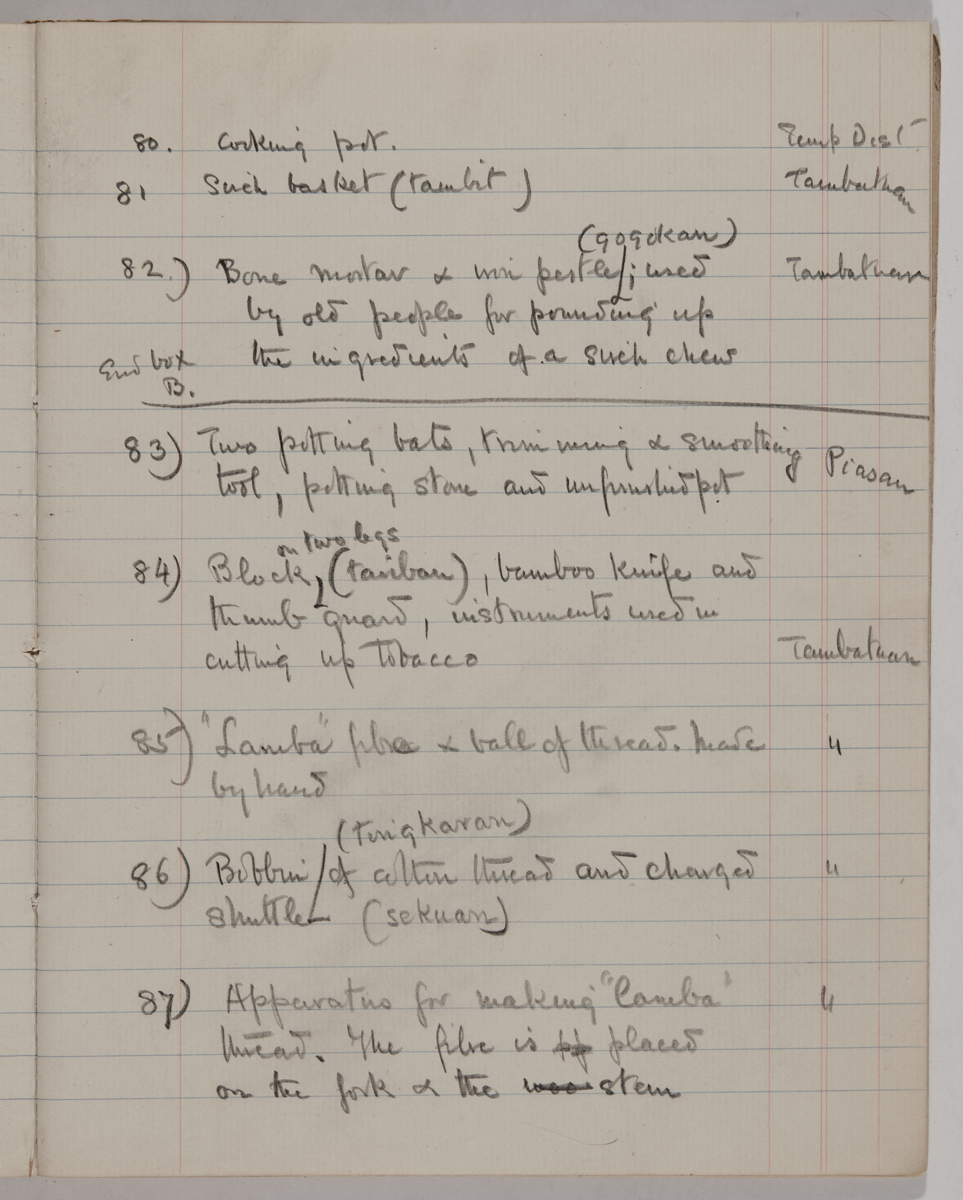 80. Cooking pot. Temp Dist
81 Sirih basket (tambit) Tambatuan
(gogokan)
82.) Bone mortar & iron pestle/; used Tambatuan
by old people for pounding up
the ingredients of a sirih chew
End box
B.
83) Two potting bats, trimming & smoothing Piasau
tool, potting stone and unfinished pot
on two legs
84) Block, (tariban), bamboo knife and
thumb guard, instruments used in
cutting up tobacco Tambatuan
85) "Lamba" fibre & ball of thread. Made "
by hand
(tingkaran)
86) Bobbin/of cotton thread and charged "
shuttle (sekuan)
87) Apparatus for making "Lamba" "
thread. The fibre is placed
on the fork & the stem